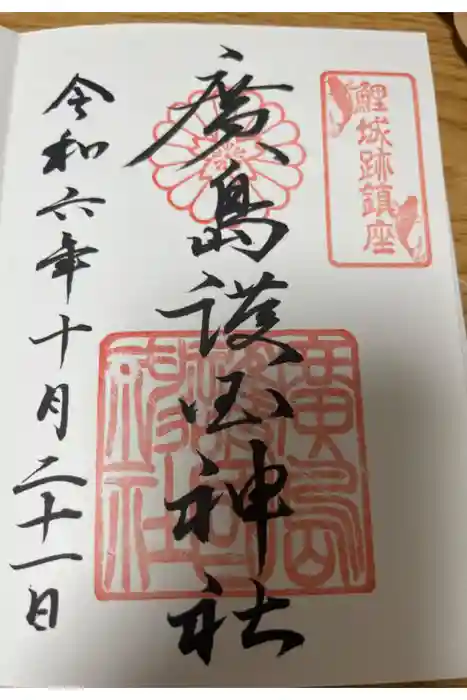 鯉城跡鎮座
廣島護国神社
廣島護國神社
令和六年十月二十一日